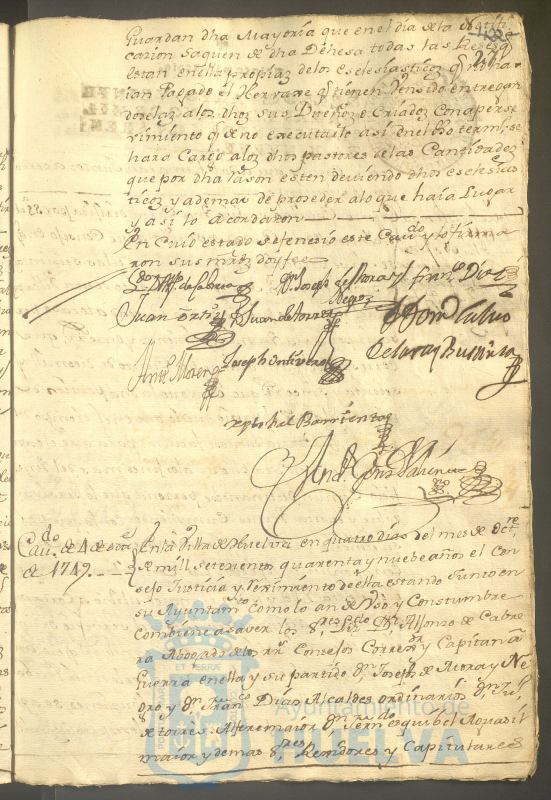 Guardan dha Mayoria que en el dia de la Notifi
cazion saquen de dha Dehesa todas las
estan en ella propias de los eclesiasticos q no ha
ian pagado el Hervaxe q tienen Vensido entregan
doselas a los dhos sus Dueños o Criados con aperse
vimiento q de no executarlo asi en el dho termi, se
hara Cargo a los dhos pastores de las Canzidades
que por dha rason esten deviendo dhos eclesias
ticos y ademas de proseder a lo que haia Lugar
y asi lo acordaron
En Cuio estado se fenesio este Cavdo y lo firma
ron sus mrzds doy fee
Cabrera Dn Joseph de Mora y Franco Dias
Negro
Juan Ortiz Juan de torres Dn Domo Calvo
Anto Moreno Joseph ontivero de Garay Bustinza
xptobal Barrientos
Andr Valencia
Cavdo de 4 de octre
de 1749
En la Villa de Huelva en quatro dias del mes de Octre
de mill setecientos quarenta y nuebe años el con
sejo Justicia y rexmiento de ella estando Junto en
su Ayuntamto como lo an de Vso y Constumbre
Combiene a saver los Sres Lizdo Dn Alfonso de Cabre
ra Abogado de los rrs Consejos Correxor y Capitan a
Guerra en ella y su partido Dn Joseph de Mora y Ne
gro y Dn Franco Dias Alcaldes ordinarios Dn Jul
de torres Alferes maior Dn Ferndo esquibel Alguasil
maior y demas Sres Rexidores y Capitulares
Ayuntamiento de
HUELVA